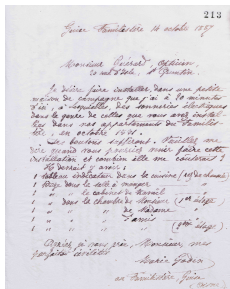 213
Guise Familistère 14 octobre 1897
Monsieur Quérard, Opticien,
St Quentin
Je désire faire installer, dans une petite
maison de campagne que j'ai à 20 minutes
d'ici, à Lesquielles, des sonneries électriques
dans le genre de celles que vous avez instal-
lées dans mes appartements du Familis-
tère, en octobre 1891.
Des boutons suffiront. Veuillez me
dire quand vous pourriez me faire cette
installation et combien elle me coûterait ?
Il devrait y avoir :
1 tableau indicateur dans la cuisine (rez de chaussée)
1 dans la salle à manger
1 " " le cabinet de travail
1 " dans la chambre de Monsieur (1er étage)
1 " " " de Madame
1 " " "
Agréez je vous prie, Monsieur, mes
parfaites civilités
Marie Godin
au Familistère, Guise